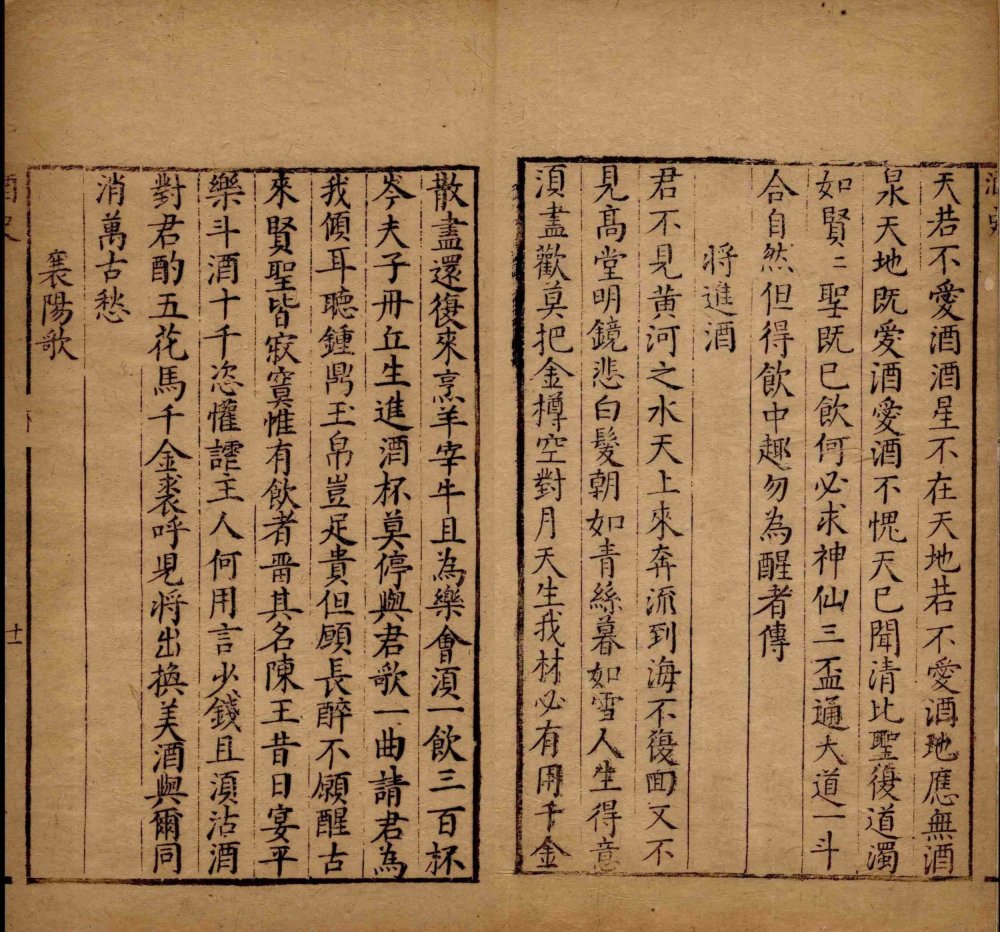 天若不愛酒酒星不在天地若不愛酒地應無酒
泉天地既愛酒愛酒不愧天已聞清比聖復道濁
如賢〻聖既已飲何必求神仙三盃通大道一斗
合自然但得飲中趣勿為醒者傳
將進酒
君不見黃河之水天上來奔流到海不復囬又不
見髙堂明鏡悲白髮朝如青絲暮如雪人生得意
須盡歡莫把金樽空對月天生我材必有用千金
散盡還復來烹羊宰牛且為樂會須一飲三百杯
岑夫子丹丘生進酒杯莫停與君歌一曲請君為
我傾耳聽鍾鼎玉帛豈足貴但願長醉不願醒古
來賢聖皆寂寞惟有飲者畱其名陳王昔日宴平
樂斗酒十千恣懽謔主人何用言少錢且須沽酒
對君酌五花馬千金裘呼兒將出換美酒與爾同
消萬古愁
襄陽歌